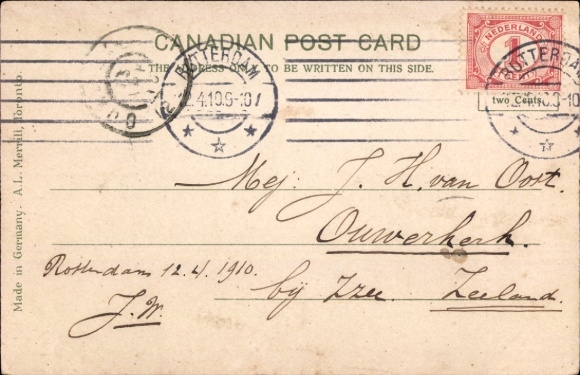 CANADIAN POST CARD
THE ADDRESS ONLY TO BE WRITTEN ON THIS SIDE.
NEDERLAND
1
two Cents
ROTTERDAM
12.4.10.9-10V
ROTTERDAM
Mej. J. H. van Oost.
Ouwerkerk.
bij Zzee Zeeland.
Rotterdam 12.4.1910.
J.W.
Made in Germany. A.L. Merrill, Toronto.